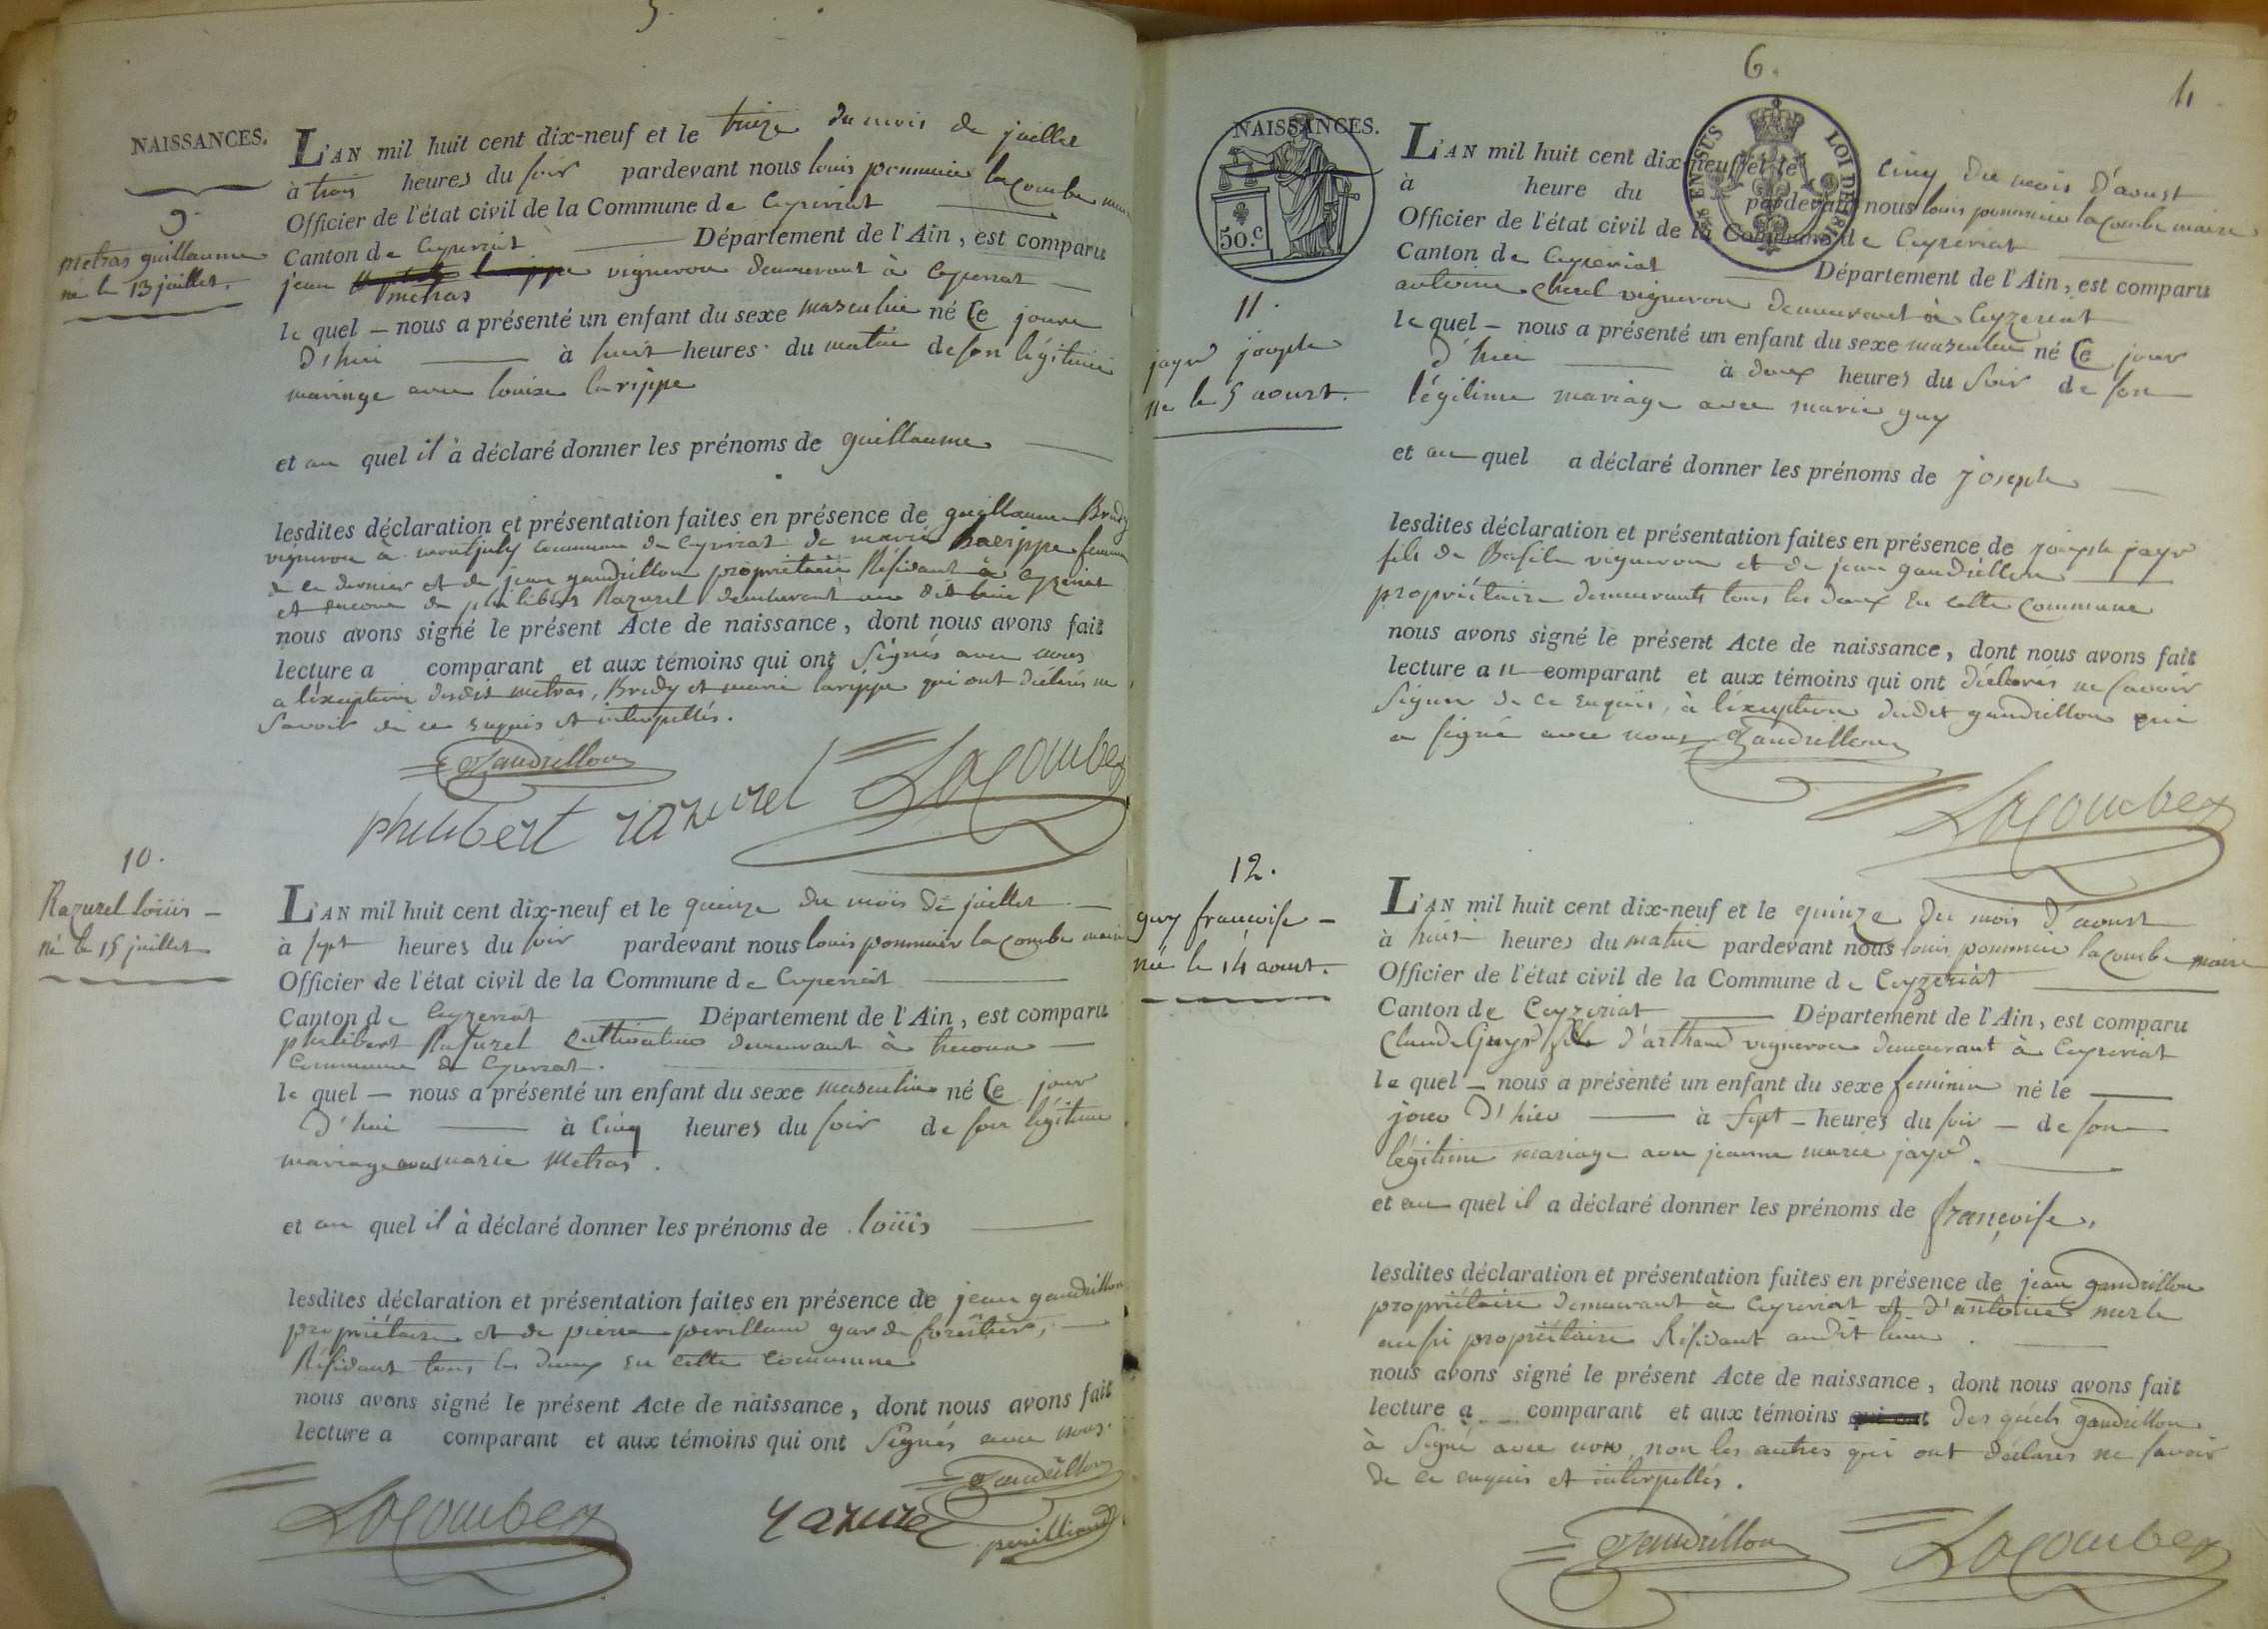 5.
NAISSANCES.
9.
metras guillaume
né le 13 juillet.
L'AN mil huit cent dix-neuf et le treize du mois de juillet
à trois heures du soir pardevant nous louis pommier lacombe maire
Officier de l'état civil de la Commune de Ceyzeriat
Canton de Ceyzeriat Département de l'Ain, est comparu
jean metras vigneron demeurant à Ceyzeriat
le quel nous a présenté un enfant du sexe masculin né Ce jour
d'hui à huit heures du matin de son légitime
mariage avec louise larippe
et au quel il à déclaré donner les prénoms de guillaume
lesdites déclaration et présentation faites en présence de guillaume Brudy
vigneron à montjuly commune de Ceyzeriat de marie Larippe femme
de ce dernier et de jean gaudrillon propriétaire Résidant à Ceyzeriat
et encore de philibert Razurel demeurant au dit lieu
nous avons signé le présent Acte de naissance, dont nous avons fait
lecture a comparant et aux témoins qui ont Signés avec nous
a l'éxception dudit metras, Brudy et marie larippe qui ont déclarés ne
Savoir de ce enquis et interpellés.
Gaudrillon
philibert razurel Lacombe
10.
Razurel loüis
né le 15 juillet
L'AN mil huit cent dix-neuf et le quinze du mois de juillet
à sept heures du soir pardevant nous louis pommier lacombe maire
Officier de l'état civil de la Commune de Ceyzeriat
Canton de Ceyzeriat Département de l'Ain, est comparu
philibert Razurel Cultivateur demeurant à
Commune de Ceyzeriat.
le quel nous a présenté un enfant du sexe masculin né Ce jour
d'hui à Cinq heures du soir de son légitime
mariage avec marie Metras.
et au quel il à déclaré donner les prénoms de loüis
lesdites déclaration et présentation faites en présence de jean gaudrillon
propriétaire et de pierre perilliand garde forêstier,
Résidant tous les deux en cette commune
nous avons signé le présent Acte de naissance, dont nous avons fait
lecture a comparant et aux témoins qui ont Signés avec nous.
Gaudrillon
Lacombe razurel
perilliand
6.
4
NAISSANCES.
50.C
LOI DE 1816
11.
jayr joseph
né le 5 aoust.
L'AN mil huit cent dix-neuf et le cinq du mois d'aoust
à heure du pardevant nous louis pommier lacombe maire
Officier de l'état civil de la Commune de Ceyzeriat
Canton de Ceyzeriat Département de l'Ain, est comparu
antoine vigneron demeurant à Ceyzeriat
le quel nous a présenté un enfant du sexe masculin né Ce jour
d'hui à deux heures du soir de son
légitime mariage avec marie guy
et au quel a déclaré donner les prénoms de joseph
lesdites déclaration et présentation faites en présence de joseph jayr
fils de Basile vigneron et de jean gaudrillon
propriétaire demeurants tous les deux En cette commune
nous avons signé le présent Acte de naissance, dont nous avons fait
lecture a u comparant et aux témoins qui ont déclarés ne savoir
signer de ce enquis, à l'éxception dudit gaudrillon qui
a signé avec nous Gaudrillon
Lacombe
12.
guy françoise
née le 14 aoust.
L'AN mil huit cent dix-neuf et le quinze du mois d'aoust
à huit heures du matin pardevant nous louis pommier lacombe maire
Officier de l'état civil de la Commune de Ceyzeriat
Canton de Ceyzeriat Département de l'Ain, est comparu
Claude Guy fils d'arthaud vigneron demeurant à Ceyzeriat
le quel nous a présenté un enfant du sexe feminin né le
jour d'hier à sept heures du soir de son
légitime mariage avec jeanne marie jayr.
et au quel il a déclaré donner les prénoms de françoise,
lesdites déclaration et présentation faites en présence de jean gaudrillon
propriétaire demeurant à Ceyzeriat et d'antoine merle
aussi propriétaire Résidant audit lieu.
nous avons signé le présent Acte de naissance, dont nous avons fait
lecture a comparant et aux témoins qui ont des quels gaudrillon
à Signé avec nous, non les autres qui ont déclarés ne savoir
de ce enquis et interpellés.
Gaudrillon Lacombe